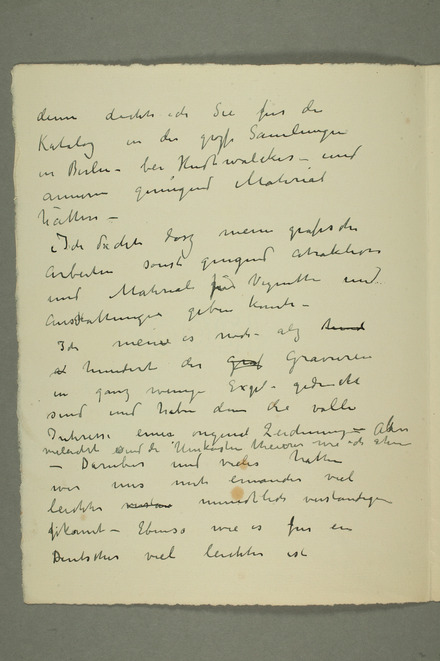 denn dachte ich Sie für den
Katalog in der große Samlungen
in Berlin – bei Hudtwalckers – und
anneren genugend Material
hätten –
Ich dachte dasz meine grafische
Arbeiten sonst genugend atraktions
und Material für Vignetten und
Ausstattungen geben konnte –
Ich meine es noch – als
hundert der Gravuren
in ganz wenige Expl. gedruckt
sind und haben dann die volle
Interesse eines orginal Zeichnung – Aber
vieleicht sind die Unkosten theurer wie ich ahne
– Daruber und vieles hatten
wir uns mit einander viel
leichter mundtlich verständigen
gekonnt – Ebenso wie es für ein
Deutscher viel leichter ist